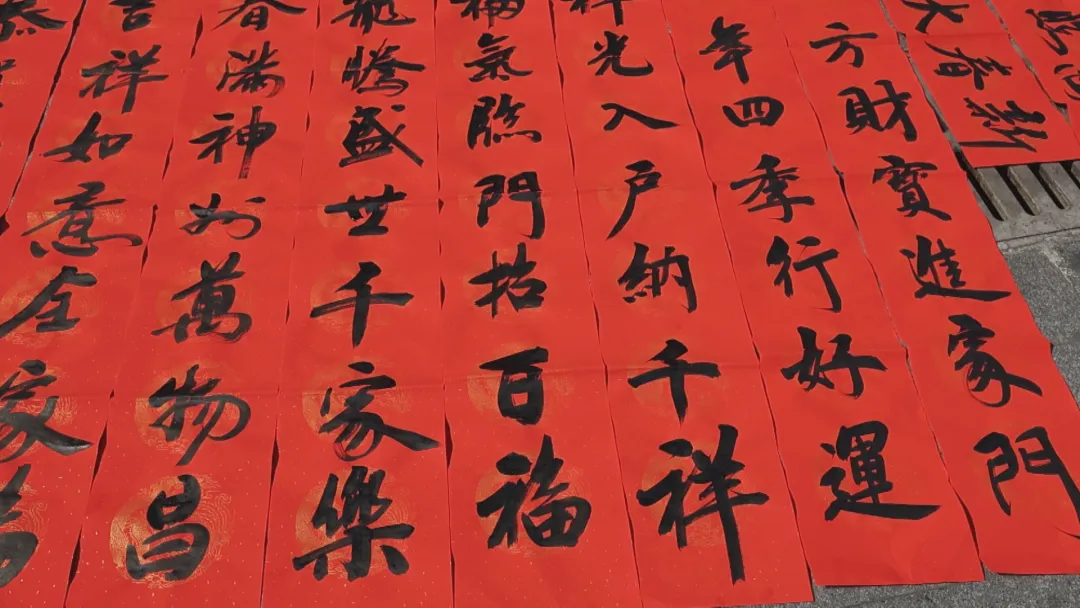 新春大
方財寶進家門
年四季行好運
祥光入户納千祥
福氣臨門招百福
龍騰盛世千家樂
春滿神州萬物昌
吉祥如意全家